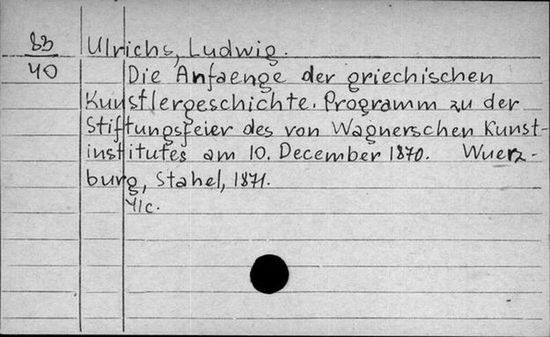 83 Ulrichs, Ludwig.
40 Die Anfaenge der griechischen
Kunstlergeschichte. Programm zu der
Stiftungsfeier des von Wagnerschen Kunst-
institutes am 10. December 1870. Wuerz-
burg, Stahel, 1871.